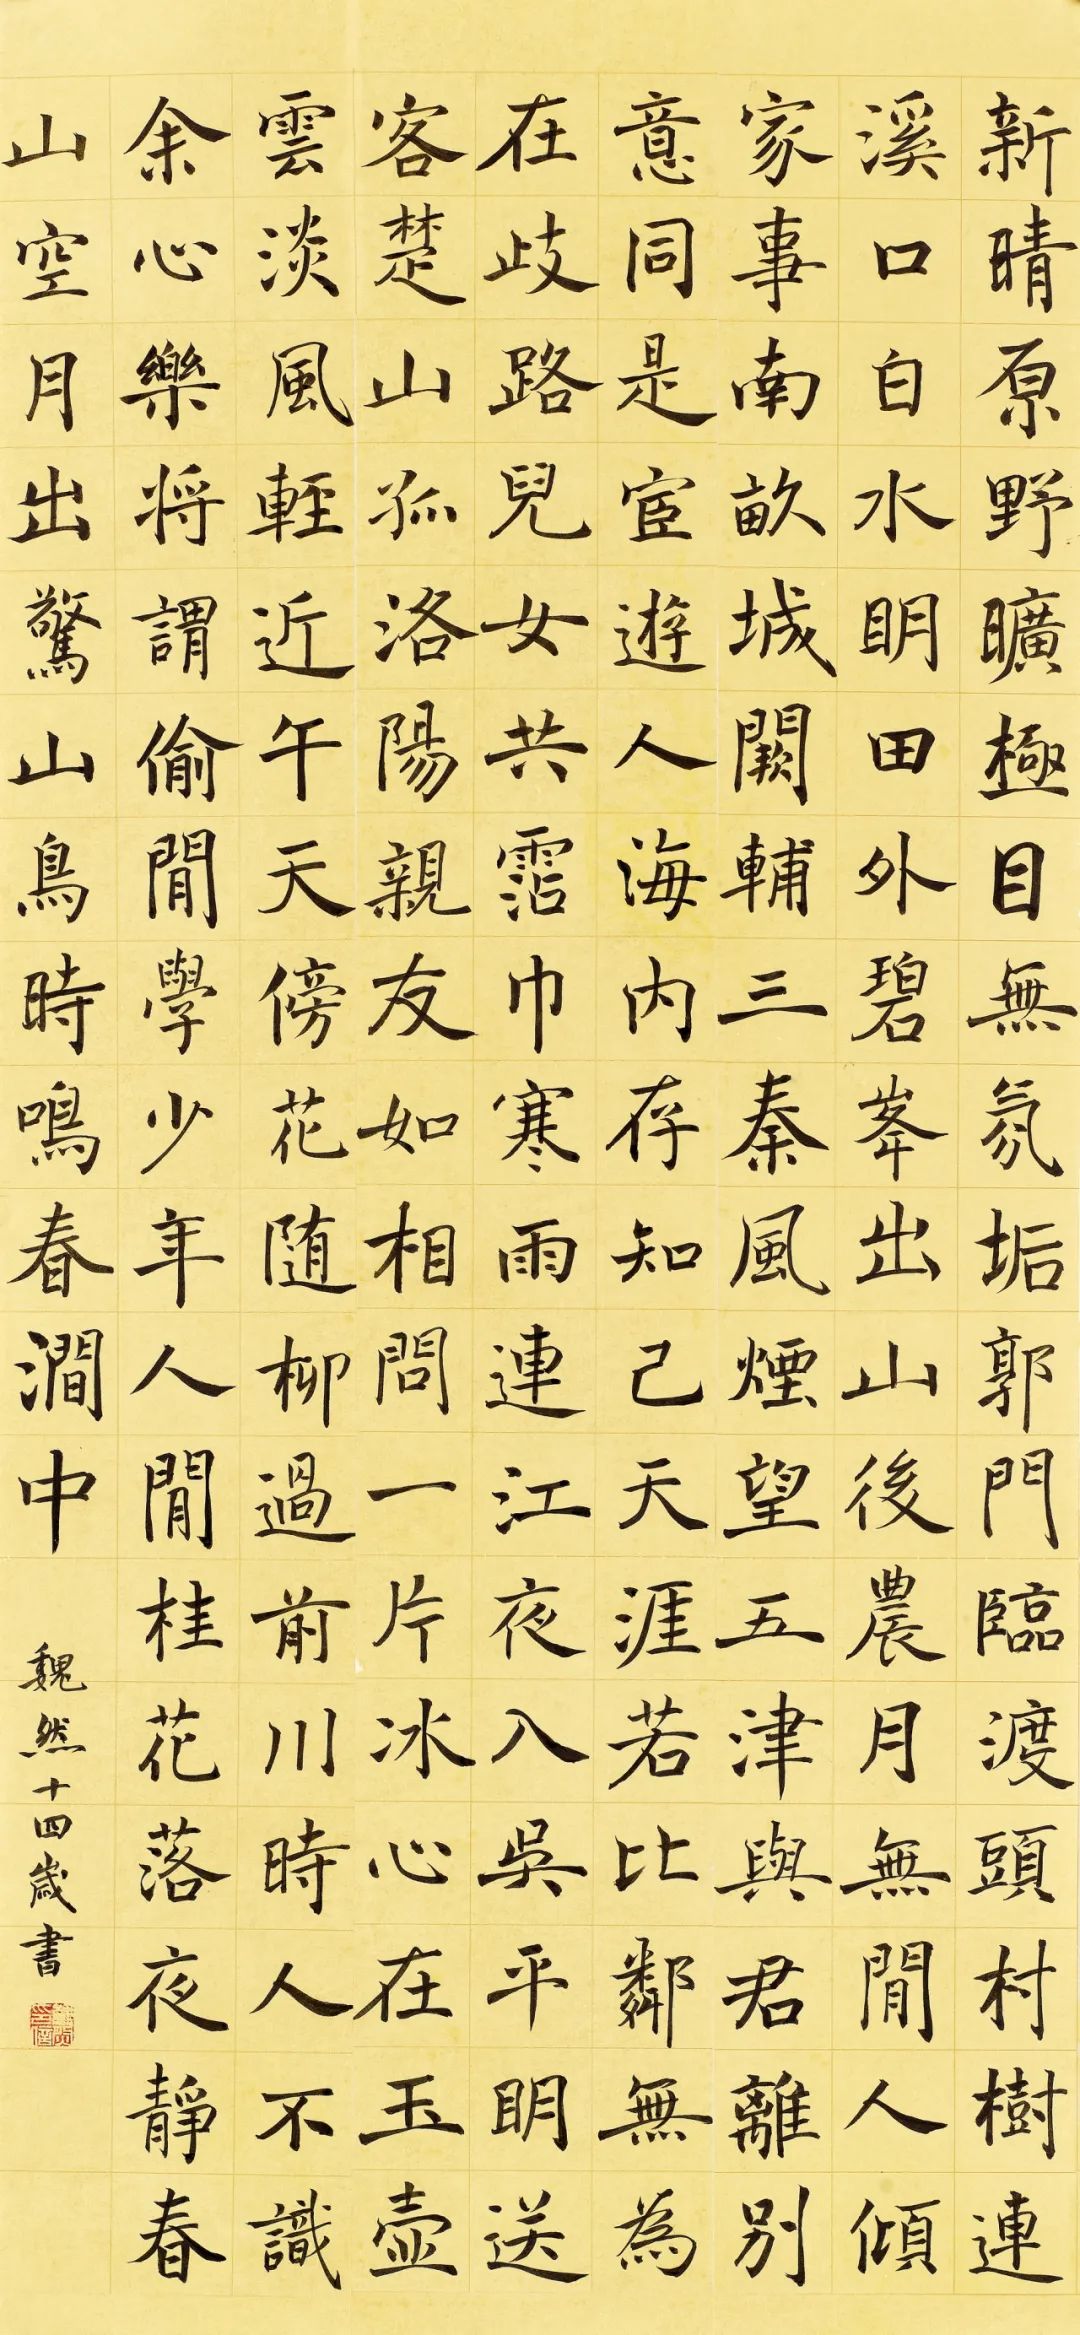 新晴原野曠極目無氛垢郭門臨渡頭村樹連
溪口白水明田外碧峯出山後農月無閒人傾
家事南畝城闕輔三秦風煙望五津與君離別
意同是宦遊人海內存知己天涯若比鄰無為
在歧路兒女共霑巾寒雨連江夜入吳平明送
客楚山孤洛陽親友如相問一片冰心在玉壺
雲淡風輕近午天傍花隨柳過前川時人不識
余心樂將謂偷閒學少年人閒桂花落夜靜春
山空月出驚山鳥時鳴春澗中
魏然十四歲書